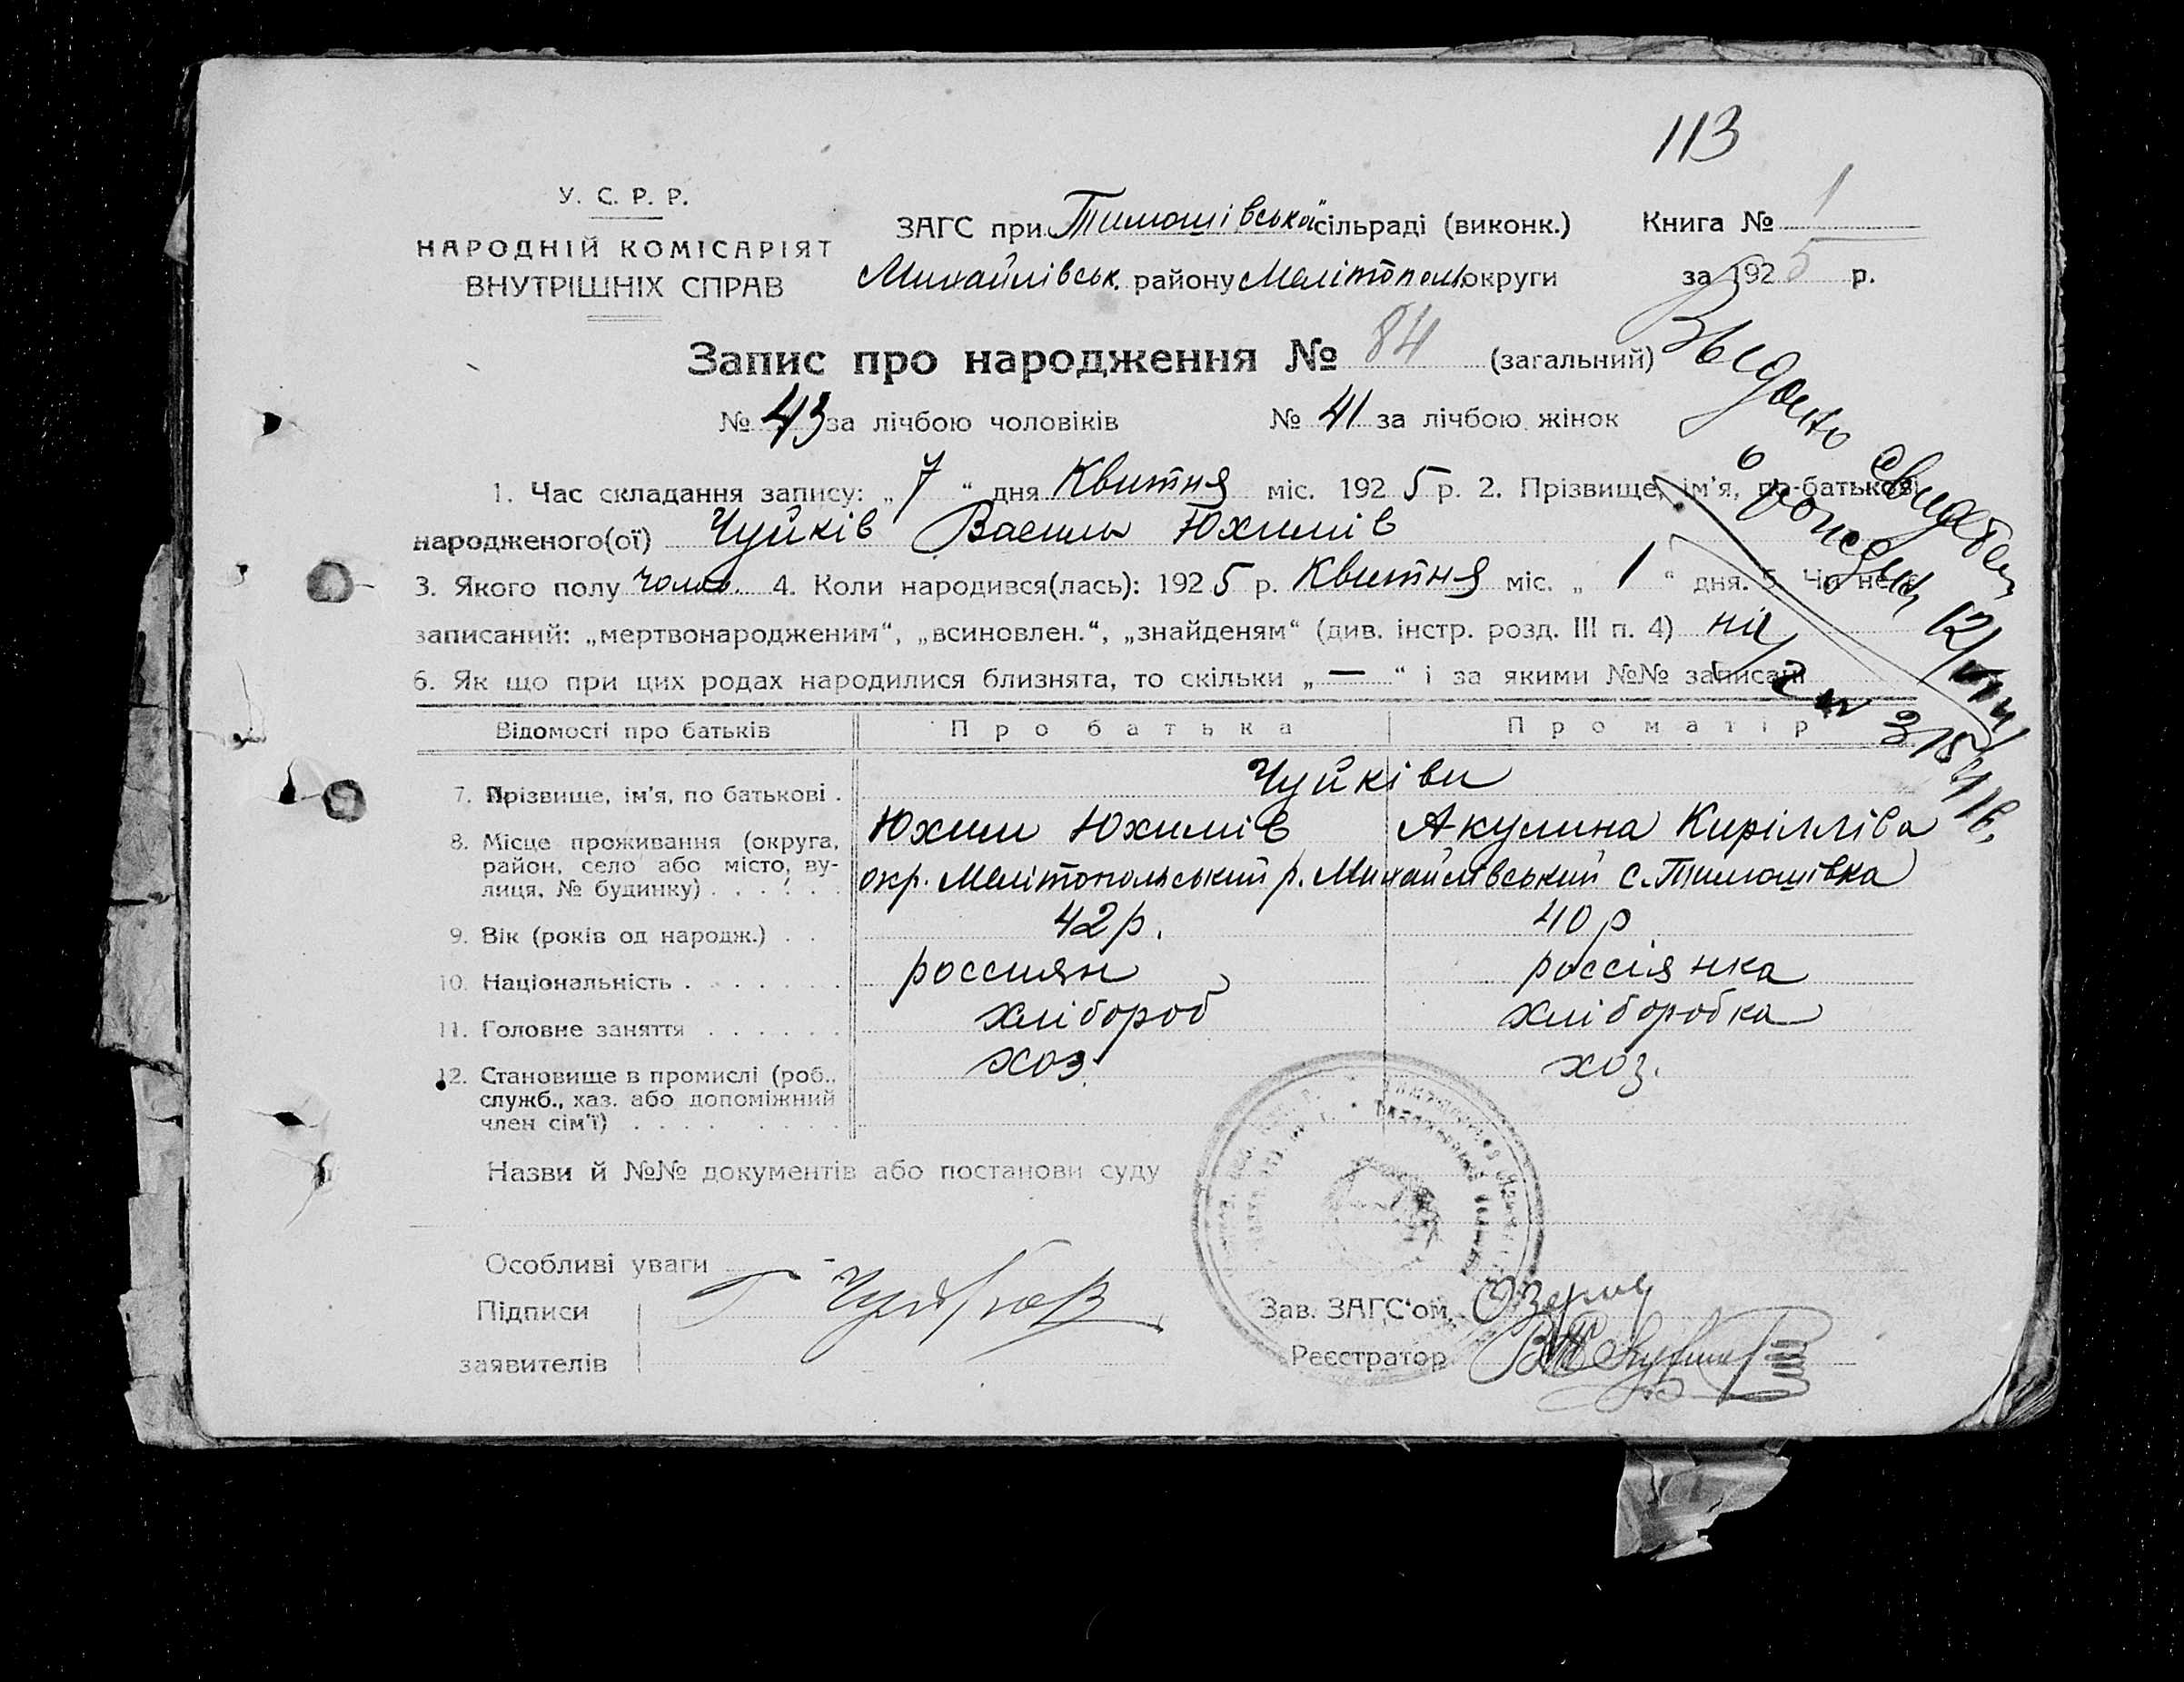 113
У. С. Р. Р.
НАРОДНІЙ КОМІСАРІЯТ
ВНУТРІШНІХ СПРАВ
ЗАГС при Тимошівській сільраді (виконк.)
Михайлівськ. району Мелітополь. округи
Книга № 1
за 1925 р.
Запис про народження № 84 (загальний)
№ 43 за лічбою чоловіків № 41 за лічбою жінок
Выдано свидетел
о рожден
1. Час складання запису: „7“ дня Квитня міс. 1925 р. 2. Прізвище, ім'я, по-батькові
народженого(ої) Чуйків Василь Юхимів
3. Якого полу чолов. 4. Коли народився(лась): 1925 р. Квитня міс. „1“ дня. 5. Чи не є
записаний: „мертвонародженим“, „всиновлен.“, „знайденям“ (див. інстр. розд. III п. 4) ні
6. Як що при цих родах народилися близнята, то скільки „—“ і за якими №№ записані
Відомості про батьків Про батька Про матір
7. Прізвище, ім'я, по батькові . Чуйківи
Юхим Юхимів Акулина Кирілліва
8. Місце проживання (округа, район, село або місто, вулиця, № будинку) . . . . . окр. Мелітопольський р. Михайлівський с. Тимошівка
9. Вік (років од народж.) . . 42 р. 40 р
10. Національність . . . . . . . россиян россіянка
11. Головне заняття . . . . . хлібороб хліборобка
12. Становище в промислі (роб., служб., хаз. або допоміжний член сім'ї) . . . . . . . . хоз. хоз.
Назви й №№ документів або постанови суду
Особливі уваги -
Підписи
заявителів
Зав. ЗАГС'ом Озеров
Реєстратор